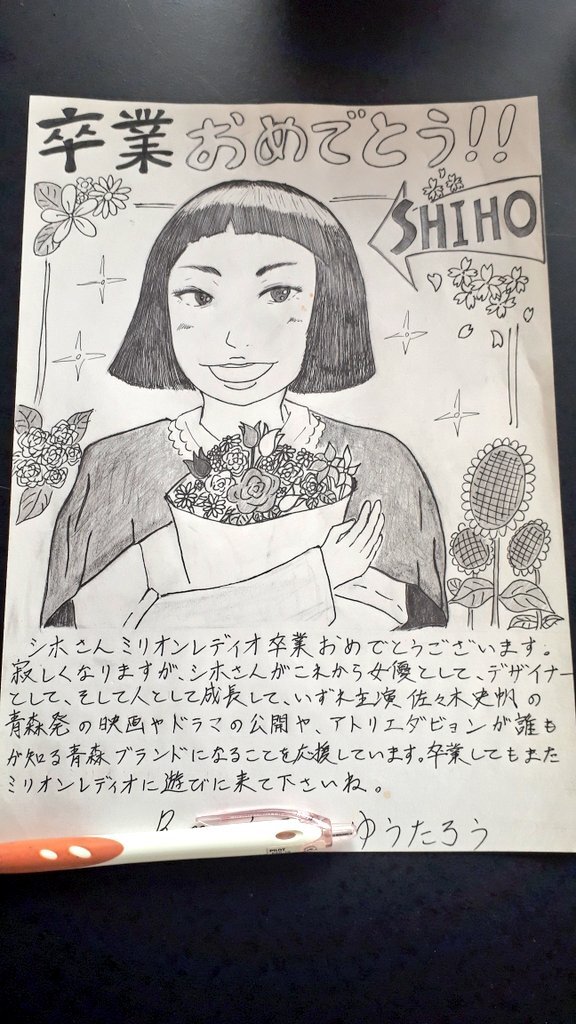 卒業おめでとう!!
SHIHO
シホさんミリオンレディオ卒業おめでとうございます。
寂しくなりますが、シホさんがこれから女優として、デザイナー
として、そして人として成長して、いずれ主演 佐々木史帆の
青森発の映画やドラマの公開や、アトリエダビョンが誰も
が知る青森ブランドになることを応援しています。卒業してもまた
ミリオンレディオに遊びに来て下さいね。
ゆうたろう